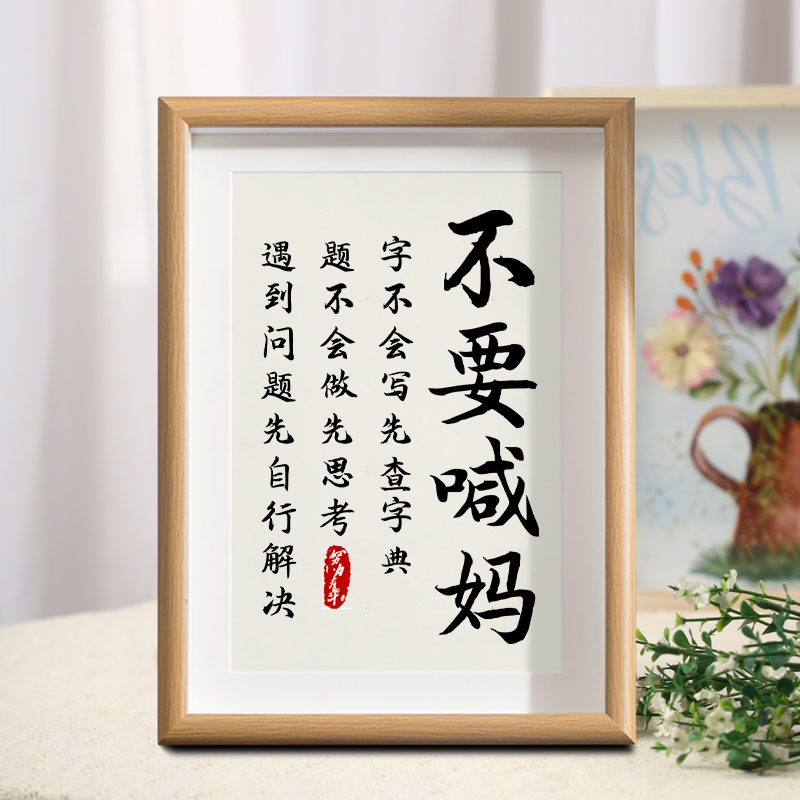 不要喊妈
字不会写先查字典
题不会做先思考
遇到问题先自行解决
Bless